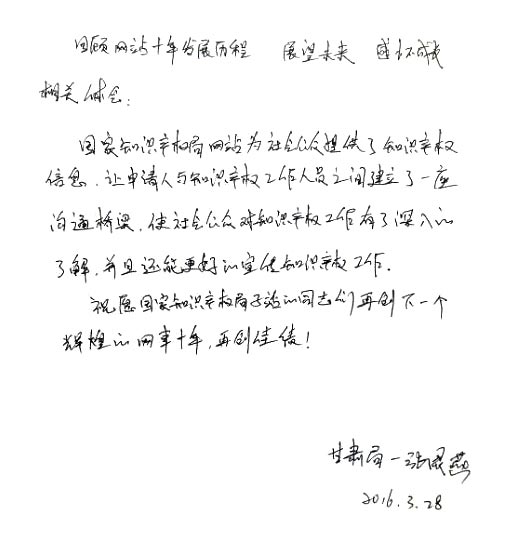 回顾网站十年发展历程 展望未来 感怀或
相关体会：
国家知识产权局网站为社会公众提供了知识产权
信息，让申请人与知识产权工作人员之间建立了一座
沟通桥梁，使社会公众对知识产权工作有了深入的
了解，并且还能更好的宣传知识产权工作。
祝愿国家知识产权局子站的同志们再创下一个
辉煌的网事十年，再创佳绩！
甘肃局—张燕
2016.3.28